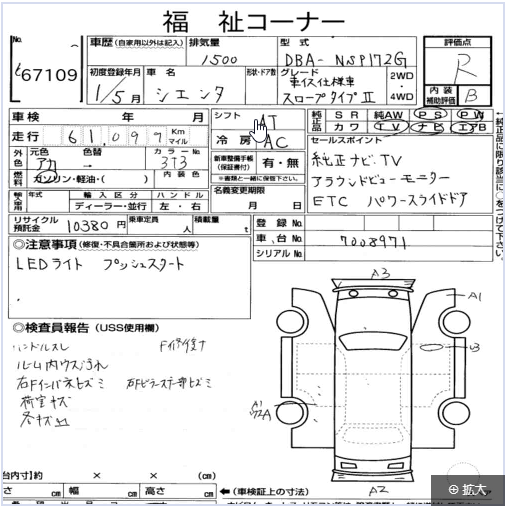 福祉コーナー
No.
67109
車歴 (自家用以外は記入)
排気量
1500
型式
DBA- NSP172G
評価点
R
初度登録年月
1/5月
車名
シエンタ
形状・ドア数
グレード
車イス仕様車
スロープタイプⅡ
2WD
・
4WD
内装
補助評価
B
車検 年 月
シフト AT
純正品
SR 純AW PS PW
カワ TV ナビ エアB
走行 61,099 Km マイル
冷房 AC
セールスポイント
純正ナビ.TV
アラウンドビューモニター
ETC パワースライドドア
外色
元色 色替
アカ
カラーNo.
3T3
新車整備手帳
(保証書付)
有・無
※書類と一緒に保管下さい。
燃料
ガソリン・軽油・( )
内装色
輸入車
年式
輸入区分
ディーラー・並行
ハンドル
左・右
名義変更期限
月 日
リサイクル
預託金
10380 円
乗車定員
人
積載量
t
登録No.
車台No. 7008971
シリアルNo.
◎注意事項 (修復・不具合箇所および状態等)
LEDライト プッシュスタート
◎検査員報告 (USS使用欄)
ハンドルスレ F修復す
ルーム内ウス汚れ
右Fインパネヒズミ 右Fピラーステー部ヒズミ
荷室キズ
A3
A1
B
A1
A2
台内寸)約 × × (cm)
さ cm 幅 cm 高さ cm
←(車検証上の寸法)→
拡大